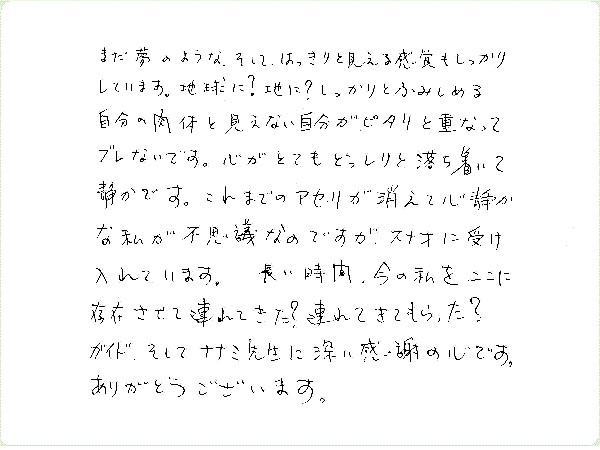 まだ夢のような、そして、はっきりと見える感覚もしっかり
しています。地球に?地に?しっかりとふみしめる
自分の肉体と見えない自分が、ピタリと重なって
ブレないです。心がとてもどっしりと落ち着いて
静かです。これまでのアセリが消えて心静か
な私が不思議なのですが、スナオに受け
入れています。 長い時間、今の私をここに
存在させて連れてきた?連れてきてもらった?
ガイド、そしてナナミ先生に深い感謝の心です。
ありがとうございます。